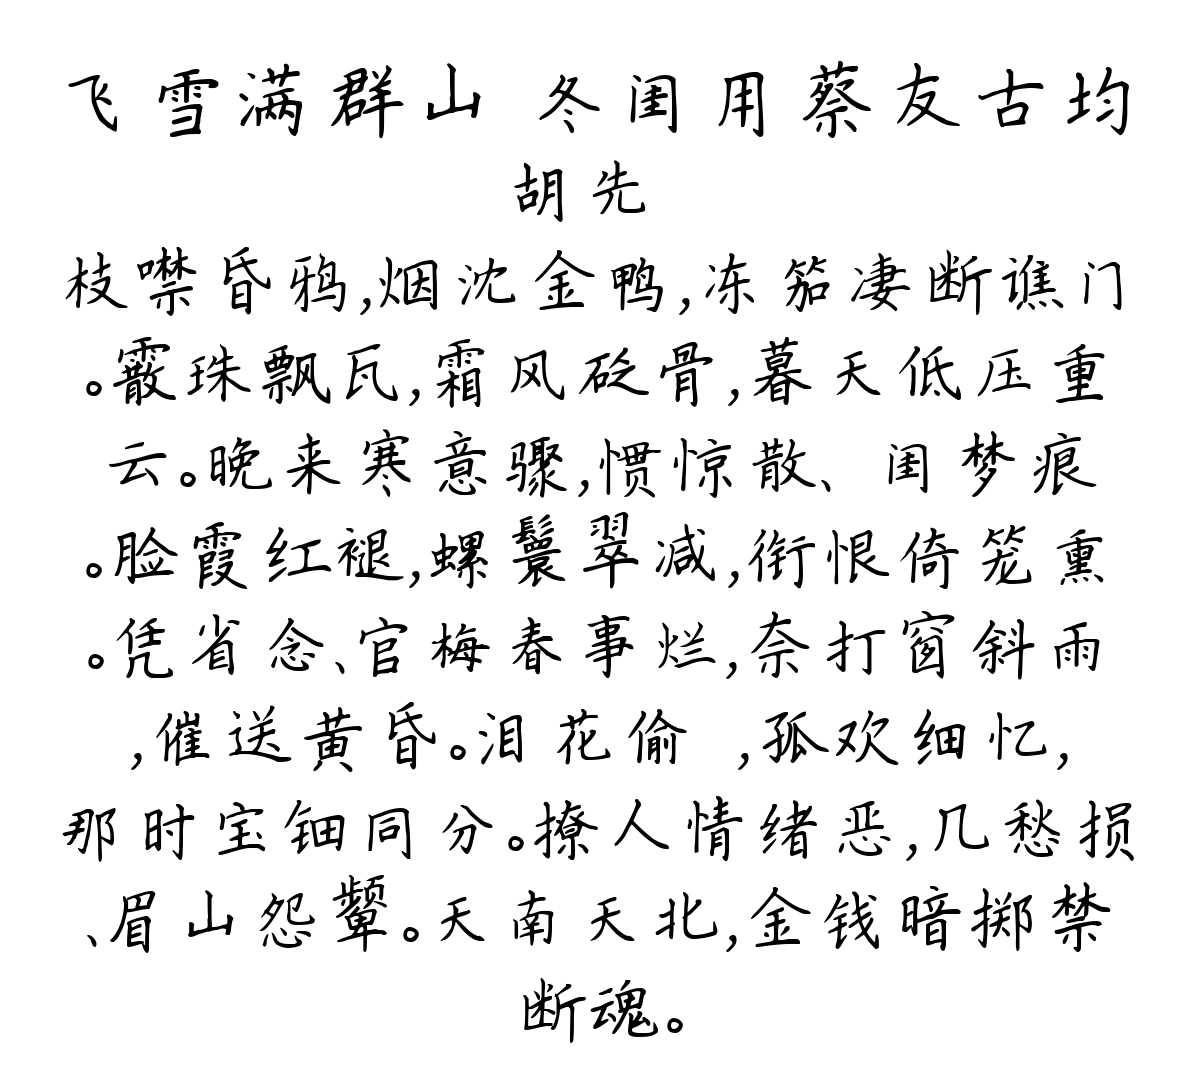 飞雪满群山 冬闺用蔡友古均
胡先
枝噤昏鸦,烟沈金鸭,冻笳凄断谯门
。霰珠飘瓦,霜风砭骨,暮天低压重
云。晚来寒意骤,惯惊散、闺梦痕
。脸霞红褪,螺鬟翠减,衔恨倚笼熏
。凭省念、官梅春事烂,奈打窗斜雨
,催送黄昏。泪花偷 ,孤欢细忆,
那时宝钿同分。撩人情绪恶,几愁损
、眉山怨颦。天南天北,金钱暗掷禁
断魂。